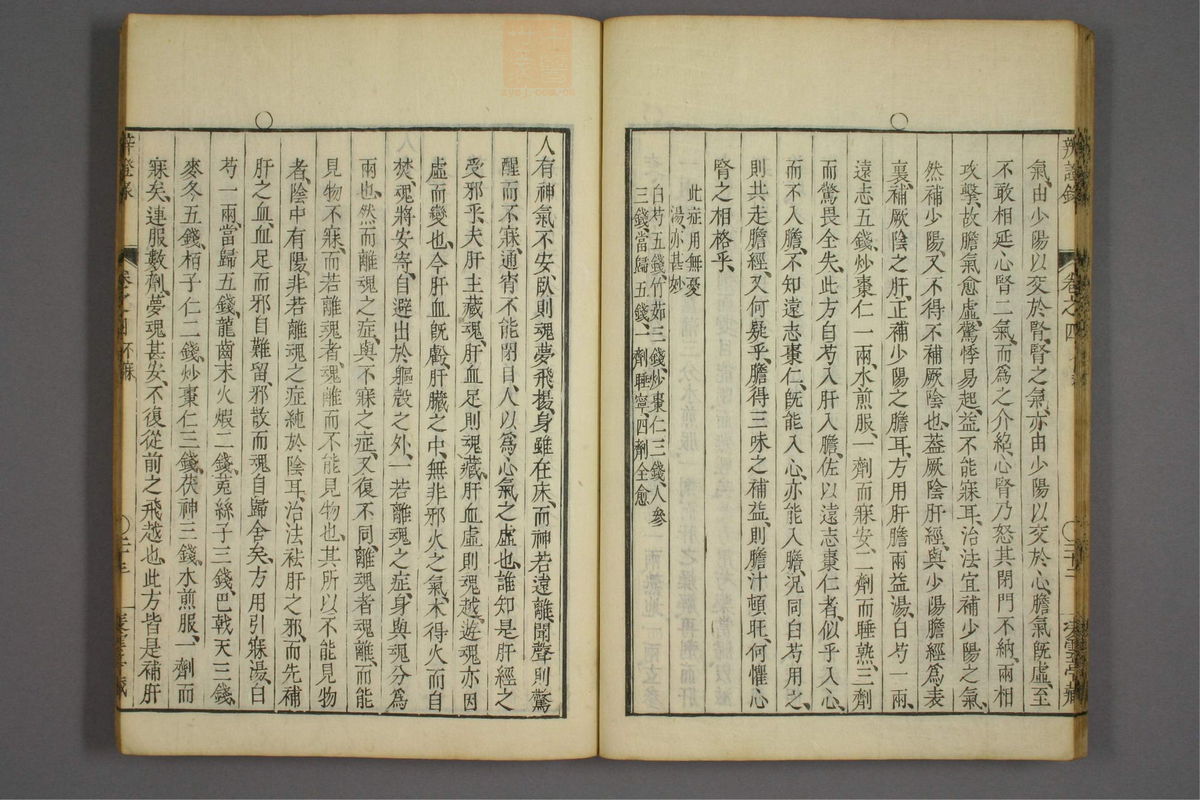 辨證錄 卷之四
氣由少陽以交於腎腎之氣亦由少陽以交於心膽氣旣虛至
不敢相延心腎二氣而爲之介紹心腎乃怒其閉門不納兩相
攻擊故膽氣愈虛驚悸易起益不能寐耳治法宜補少陽之氣
然補少陽又不得不補厥陰也葢厥陰肝經與少陽膽經爲表
裏補厥陰之肝正補少陽之膽耳方用肝膽兩益湯白芍一兩
遠志五錢炒棗仁一兩水煎服一劑而寐安二劑而睡熟三劑
而驚畏全失此方白芍入肝入膽佐以遠志棗仁者似乎入心
而不入膽不知遠志棗仁旣能入心亦能入膽況同白芍用之
則共走膽經又何疑乎膽得三味之補益則膽汁頓旺何懼心
腎之相格乎
此症用無憂
湯亦甚妙
白芍五錢竹茹三錢炒棗仁三錢人參
三錢當歸五錢一劑睡寧四劑全愈
人有神氣不安臥則魂夢飛揚身雖在床而神若遠離聞聲則驚
醒而不寐通宵不能閉目人以爲心氣之虛也誰知是肝經之
受邪乎夫肝主藏魂肝血足則魂藏肝血虛則魂越遊魂亦因
虛而變也今肝血旣虧肝臟之中無非邪火之氣木得火而自
焚魂將安寄自避出於軀殼之外一若離魂之症身與魂分爲
兩也然而離魂之症與不寐之症又復不同離魂者魂離而能
見物不寐而若離魂者魂離而不能見物也其所以不能見物
者陰中有陽非若離魂之症純於陰耳治法祛肝之邪而先補
肝之血血足而邪自難留邪散而魂自歸舍矣方用引寐湯白
芍一兩當歸五錢龍齒末火煆二錢菟絲子三錢巴戟天三錢
麥冬五錢栢子仁二錢炒棗仁三錢茯神三錢水煎服一劑而
寐矣連服數劑夢魂甚安不復從前之飛越也此方皆是補肝
辨證錄 卷之四 不寐